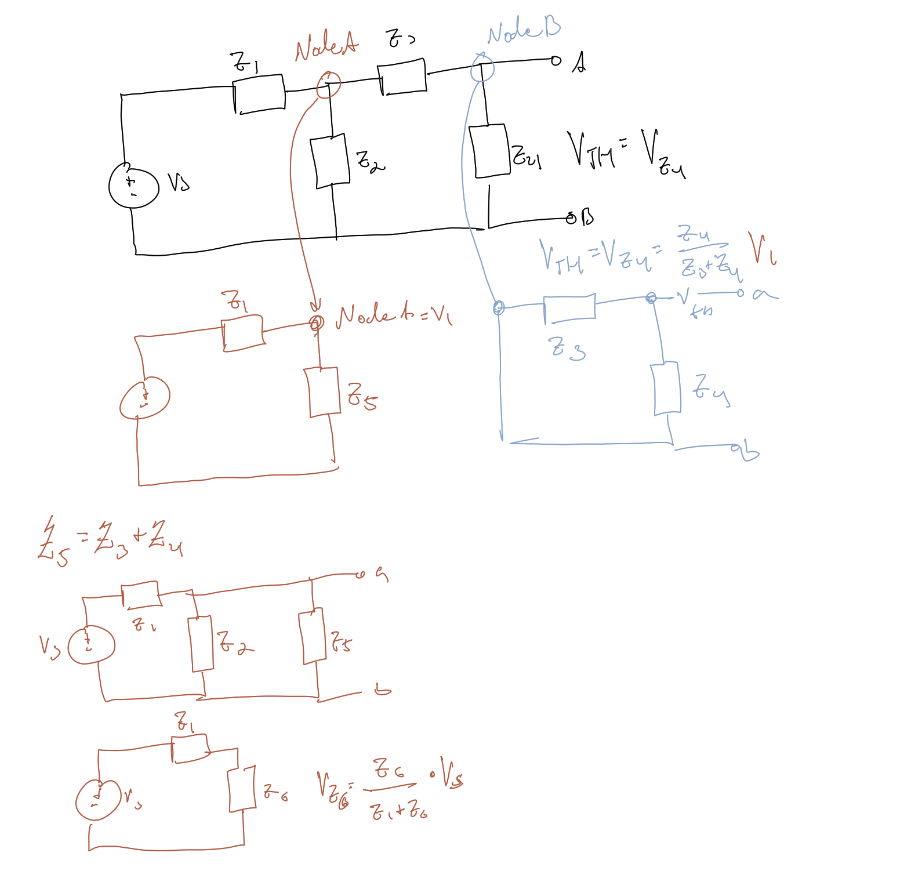 Node A
Node B
Z1
Z3
A
Z2
Z4
VTH = VZ4
Vs
+
-
B
VTH = VZ4 = Z4 / Z3+Z4 V1
Z1
Node A = V1
Vth
a
Z3
Z5
Z4
+
-
b
Z5 = Z3 + Z4
a
Z1
Vs
+
-
Z2
Z5
b
Z1
+
-
Vs
Z6
VZ6 = Z6 / Z1+Z6 · Vs